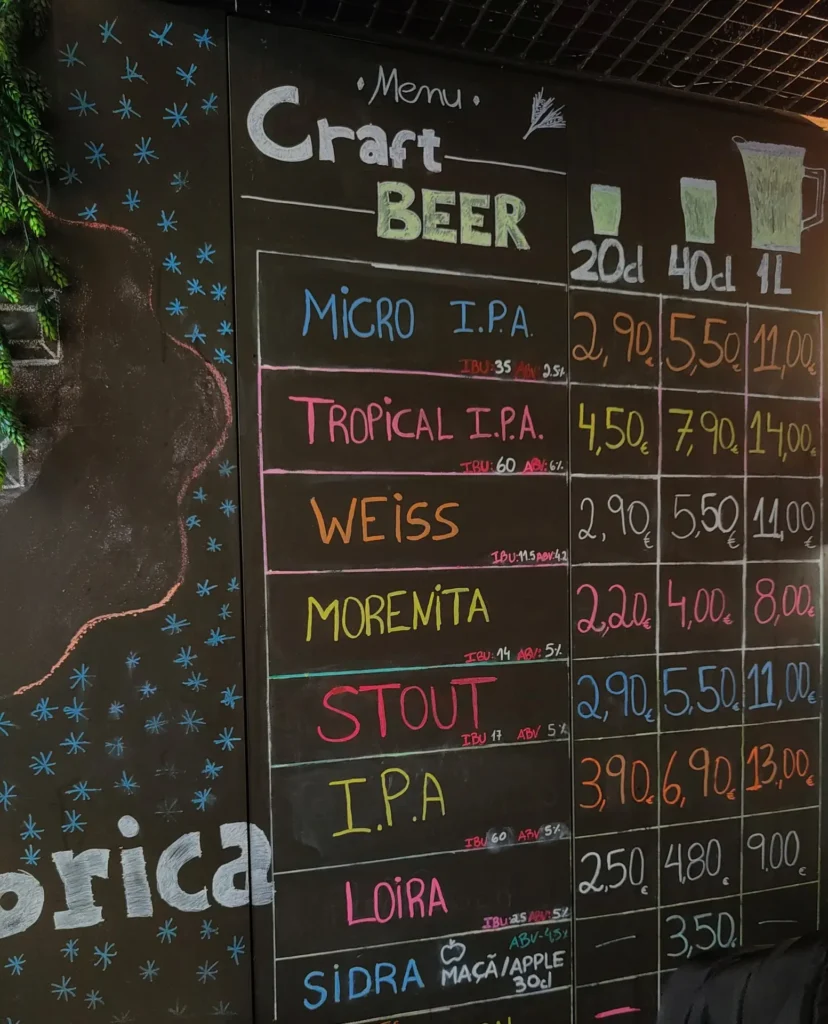 • Menu •
Craft
BEER
20cl 40cl 1L
MiCRO I.P.A. 2,90€ 5,50€ 11,00€
IBU: 35 ABV: 2.5%
TROPiCAL I.P.A. 4,50€ 7,90€ 14,00€
IBU: 60 ABV: 6%
WEiSS 2,90€ 5,50€ 11,00€
IBU: 11.5 ABV: 4.2
MORENiTA 2,20€ 4,00€ 8,00€
IBU: 14 ABV: 5%
STOUT 2,90€ 5,50€ 11,00€
IBU 17 ABV 5%
I.P.A 3,90€ 6,90€ 13,00€
IBU 60 ABV: 5%
LOiRA 2,50€ 4,80€ 9,00€
IBU: 25 ABV: 5%
ABV-4,5%
SiDRA MAÇÃ/APPLE — 3,50€ —
30cl
órica